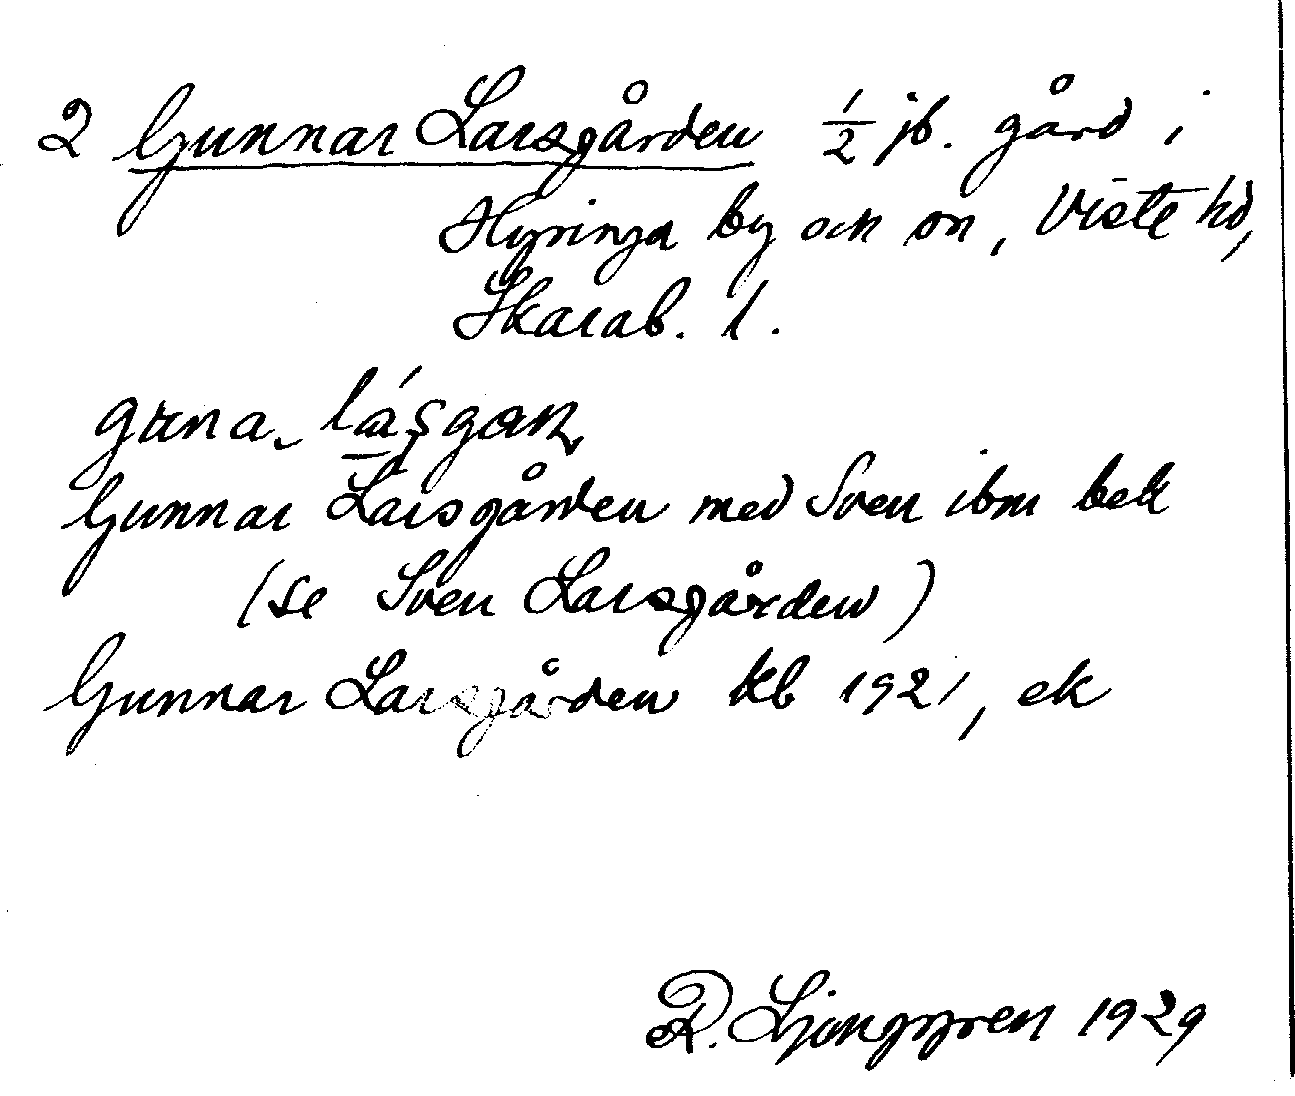 2 Gunnar Larsgården 1/2 jb. gård i
Hyringa by och sn, Viste hd,
Skarab. l.
Gunnar Larsgården med Sven ibm bek
(se Sven Larsgården)
Gunnar Larsgården kb 1921, ek
R. Ljunggren 1929